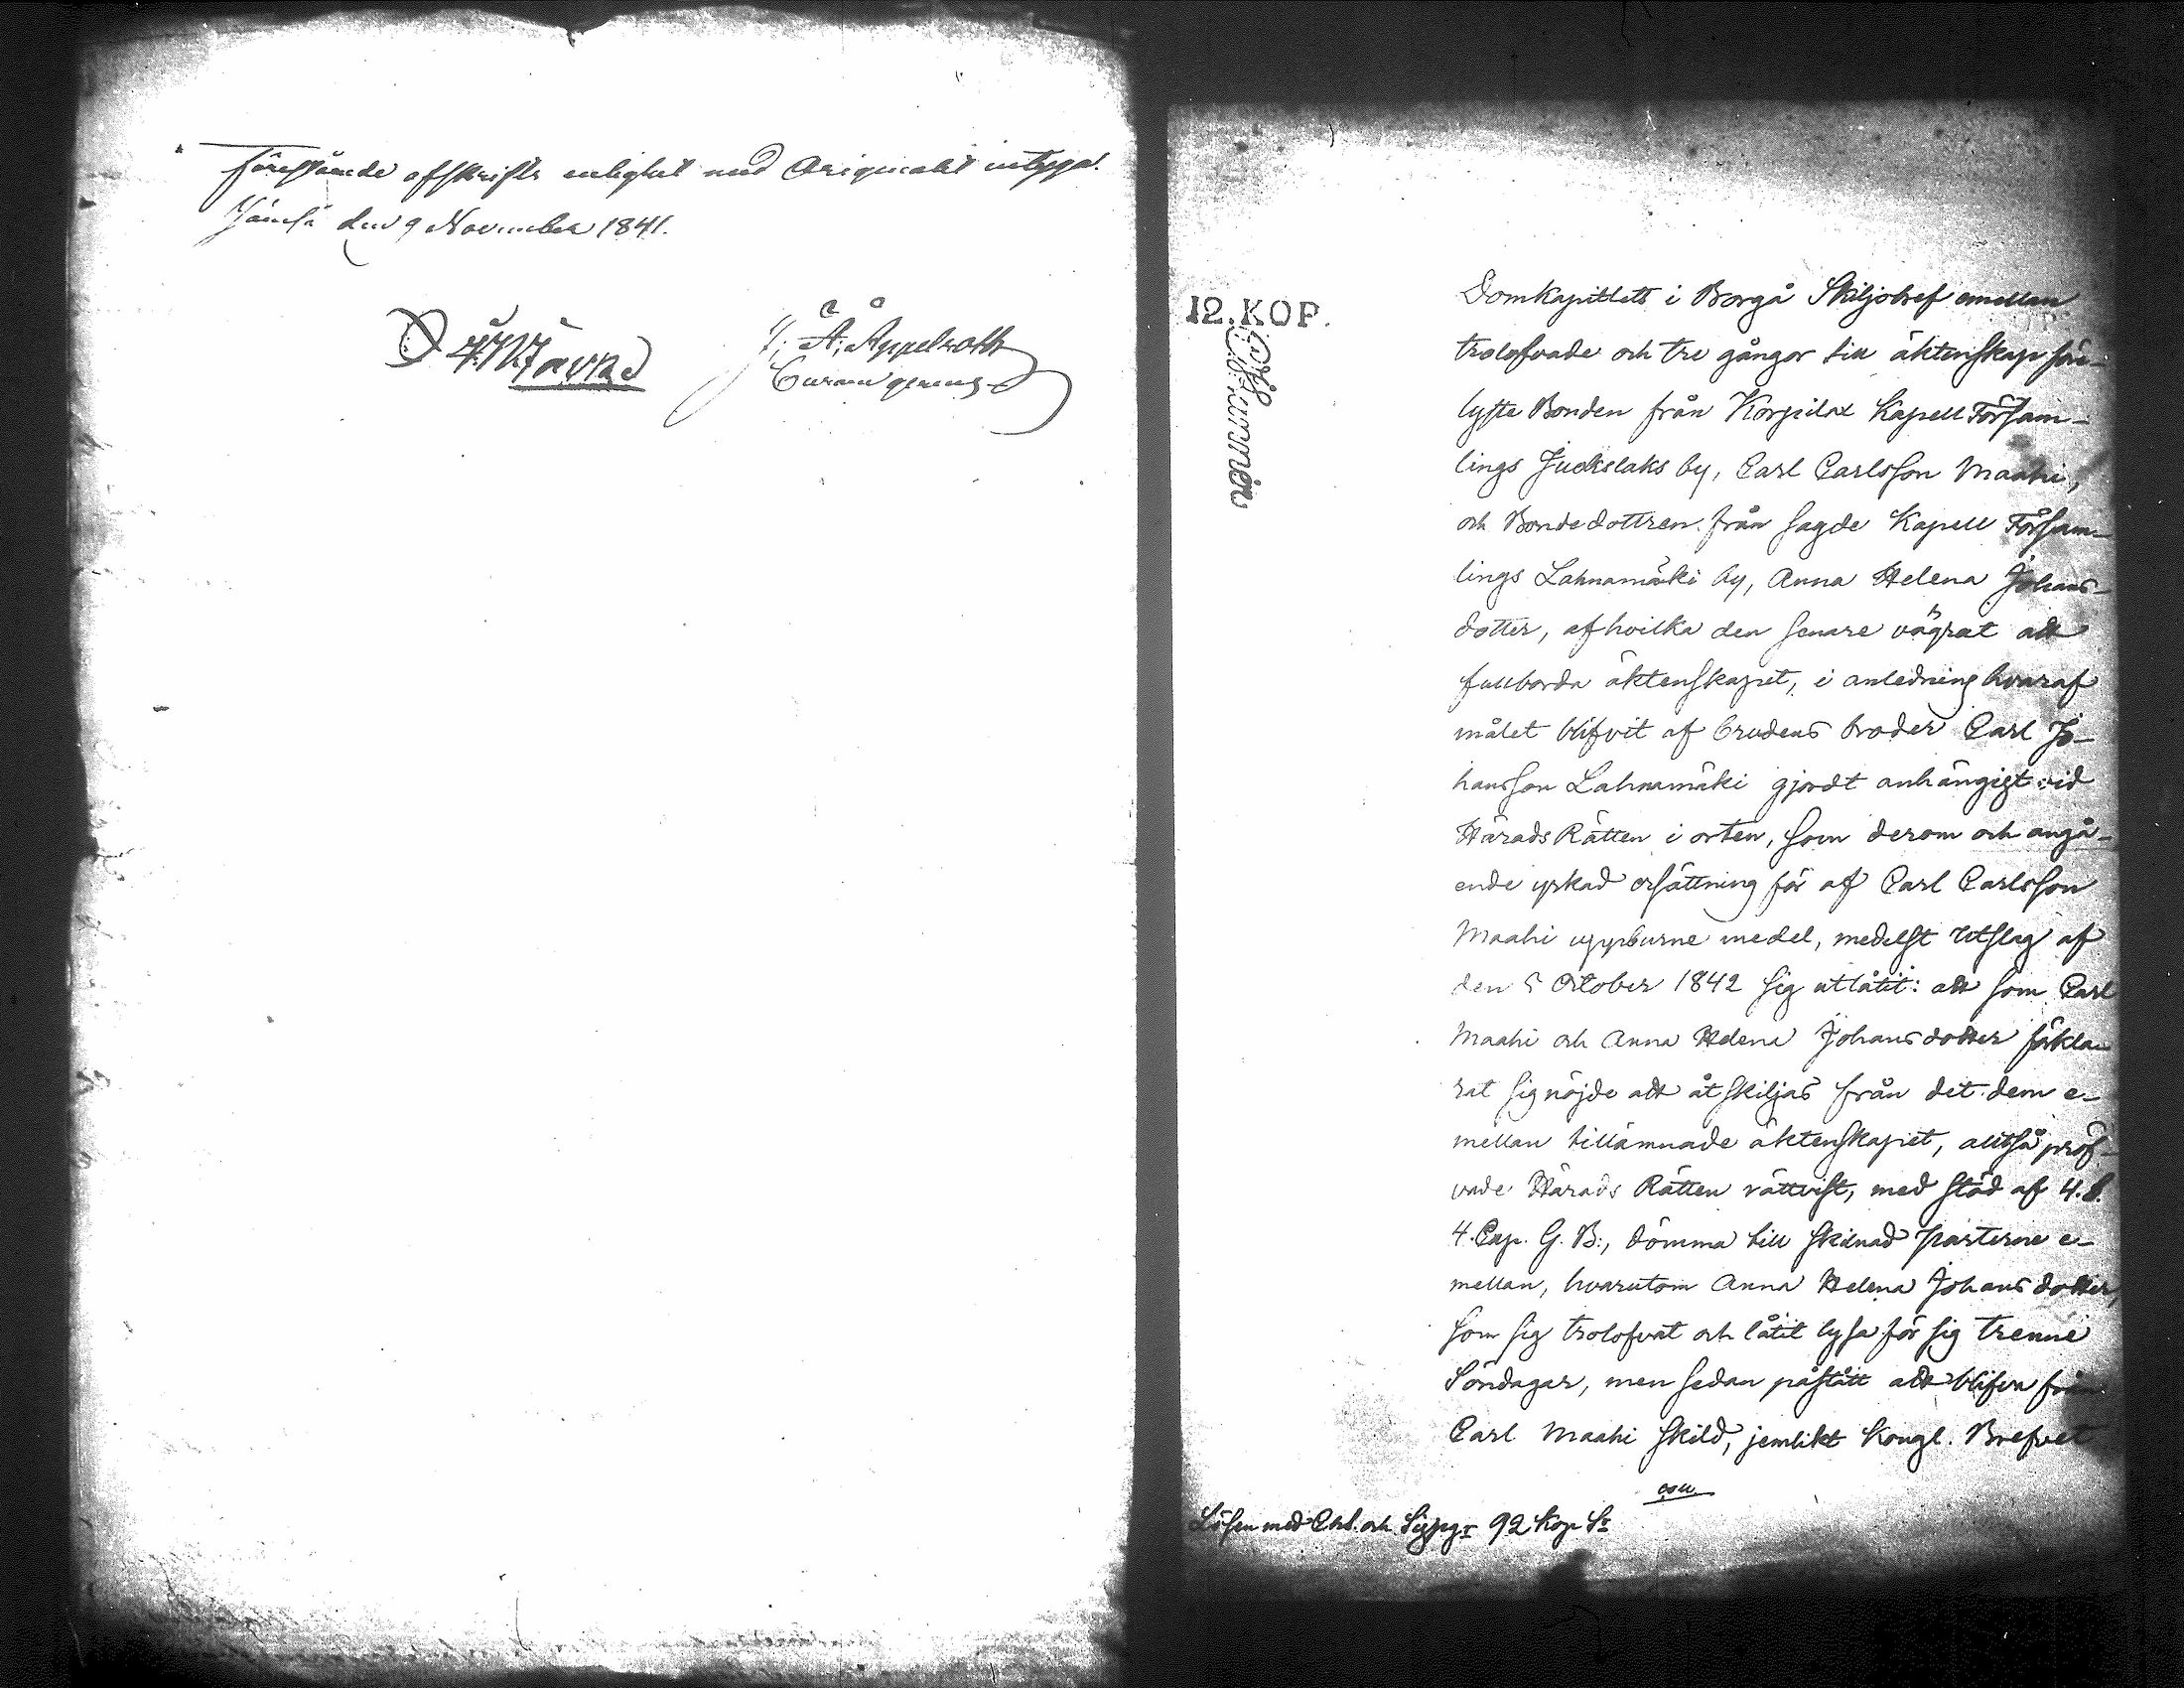 Förestående afskrifts enlighet med Originalet intygar.
Jämsä den 9 November 1841.
J. A. Appelroth
12. KOP.
Domkapitlets i Borgå Skiljobref emellan
trolofvade och tre gångor till äktenskap före-
lyste Bonden från Korpilax Kapell Försam-
lings Juokslaks by, Carl Carlsson Maahi,
och Bondedottren från sagde Kapell Försam-
lings Lahnamäki by, Anna Helena Johans-
dotter, af hvilka den senare vägrat att
fullborda äktenskapet, i anledning hvaraf
målet blifvit af brudens broder Carl Jo-
hansson Lahnamäki gjordt anhängigt vid
Härads Rätten i orten, som derom och angå-
ende yrkad ersättning för af Carl Carlsson
Maahi uppburne medel, medelst Utslag af
den 5 October 1842 sig utlåtit: att som Carl
Maahi och Anna Helena Johansdotter förkla-
rat sig nöjde att åtskiljas från det dem e-
mellan tillämnade äktenskapet, alltså pröf-
vade Härads Rätten rättvist, med stöd af 4. §.
4. Cap. G. B., dömma till skilnad parterne e-
mellan, hvarutom Anna Helena Johansdotter,
som sig trolofvat och låtit lysa för sig trenne
Söndagar, men sedan påstått att blifva från
Carl Maahi skild, jemlikt Kongl. Brefvet
Lösen med Chl. och 92 Kop Sr